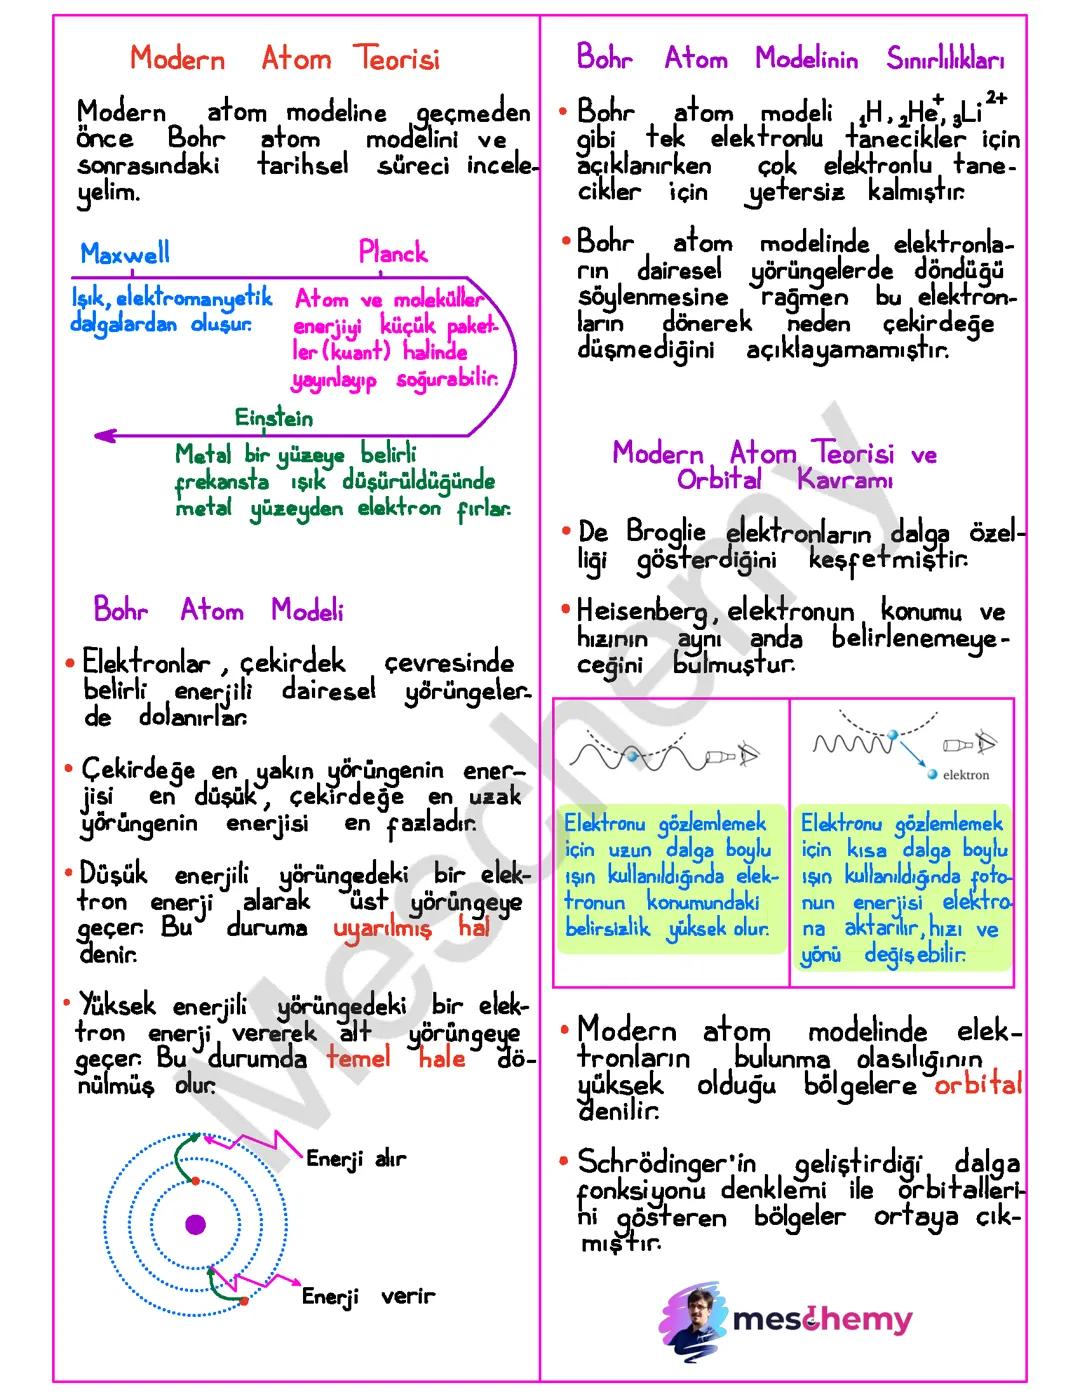 Modern Atom Teorisi
Modern atom modeline geçmeden
önce Bohr atom modelini ve
sonrasındaki tarihsel süreci incele-
yelim.
Maxwell
Planck
Işık, elektromanyetik
dalgalardan oluşur.
Atom ve moleküller
enerjiyi küçük paket-
ler (kuant) halinde
yayınlayıp soğurabilir.
Einstein
Metal bir yüzeye belirli
frekansta ışık düşürüldüğünde
metal yüzeyden elektron fırlar.
Bohr Atom Modeli
• Elektronlar, çekirdek çevresinde
belirli enerjili dairesel yörüngeler-
de dolanırlar.
• Çekirdeğe en yakın yörüngenin ener-
jisi en düşük, çekirdeğe en uzak
yörüngenin enerjisi en fazladır.
• Düşük enerjili yörüngedeki bir elek-
tron enerji alarak üst yörüngeye
geçer. Bu duruma uyarılmış hal
denir.
• Yüksek enerjili yörüngedeki bir elek-
tron enerji vererek alt yörüngeye
geçer. Bu durumda temel hale dö-
nülmüş olur.
Enerji alır
Enerji verir
Bohr Atom Modelinin Sınırlılıkları
• Bohr atom modeli ₁H, ₂He⁺, ₃Li²⁺
gibi tek elektronlu tanecikler için
açıklanırken çok elektronlu tane-
cikler için yetersiz kalmıştır.
• Bohr atom modelinde elektronla-
rın dairesel yörüngelerde döndüğü
söylenmesine rağmen bu elektron-
ların dönerek neden çekirdeğe
düşmediğini açıklayamamıştır.
Modern Atom Teorisi ve
Orbital Kavramı
• De Broglie elektronların dalga özel-
liği gösterdiğini keşfetmiştir.
• Heisenberg, elektronun konumu ve
hızının aynı anda belirlenemeye-
ceğini bulmuştur.
elektron
Elektronu gözlemlemek
için uzun dalga boylu
ışın kullanıldığında elek-
tronun konumundaki
belirsizlik yüksek olur.
Elektronu gözlemlemek
için kısa dalga boylu
ışın kullanıldığında foto-
nun enerjisi elektro-
na aktarılır, hızı ve
yönü değişebilir.
• Modern atom modelinde elek-
tronların bulunma olasılığının
yüksek olduğu bölgelere orbital
denilir.
• Schrödinger'in geliştirdiği dalga
fonksiyonu denklemi ile orbitalleri-
ni gösteren bölgeler ortaya çık-
mıştır.
meschemy
Meschemy